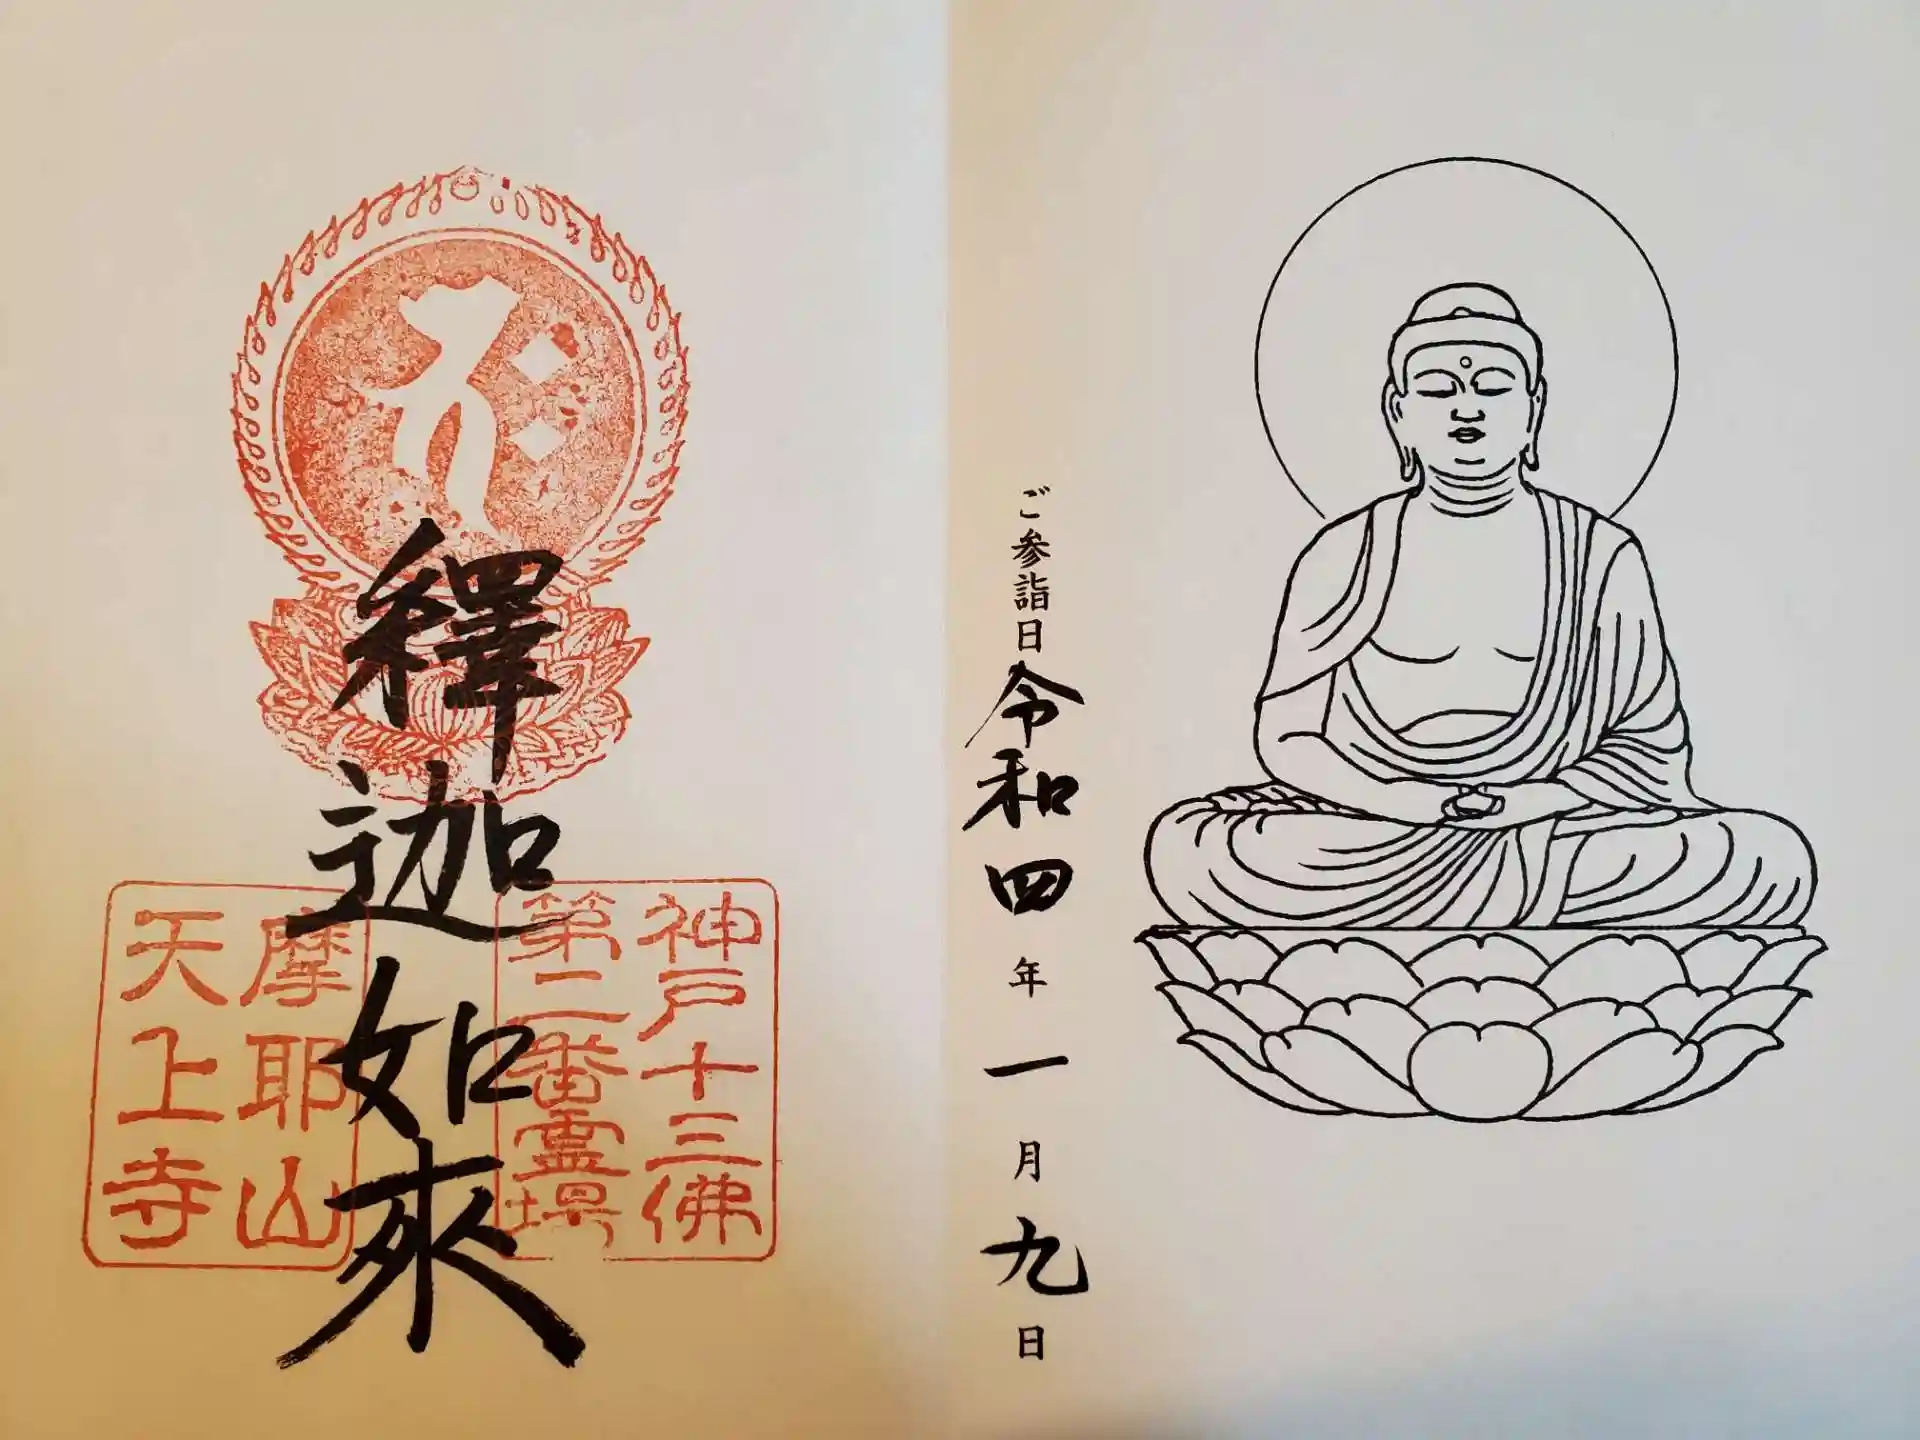 ご参詣日令和四年一月九日
釋迦如來
神戸十三佛
第二番霊場
摩耶山
天上寺